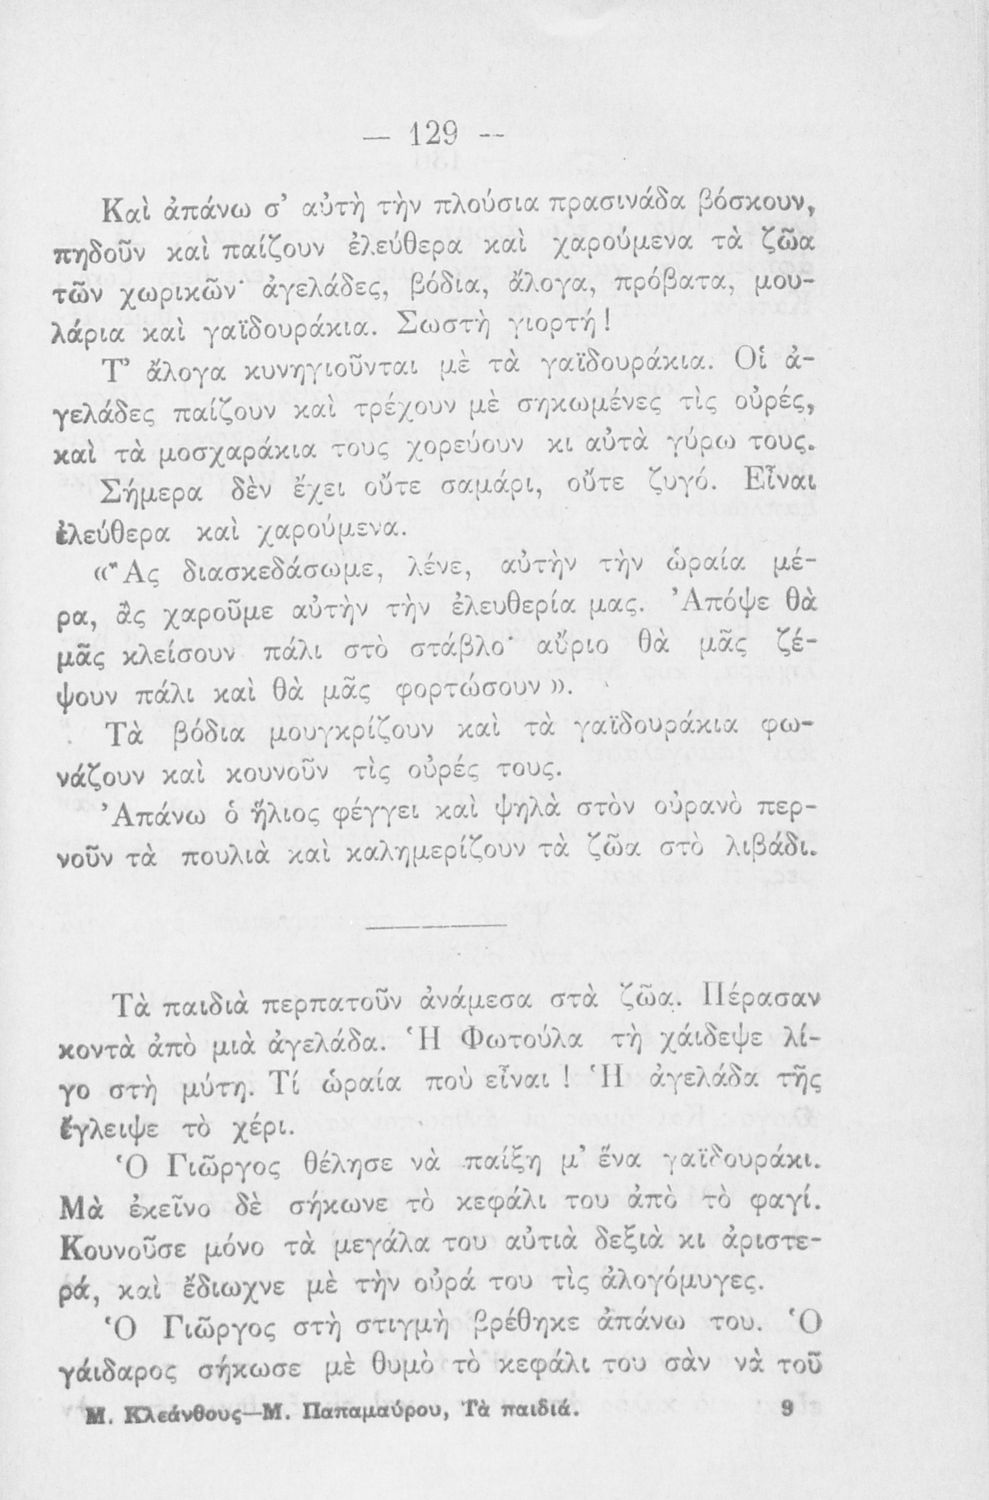 — 129 —
Καὶ ἀπάνω σ’ αὐτὴ τὴν πλούσια πρασινάδα βόσκουν,
πηδοῦν καὶ παίζουν ἐλεύθερα καὶ χαρούμενα τὰ ζῶα
τῶν χωρικῶν· ἀγελάδες, βόδια, ἄλογα, πρόβατα, μου-
λάρια καὶ γαϊδουράκια. Σωστὴ γιορτή!
Τ’ ἄλογα κυνηγιοῦνται μὲ τὰ γαϊδουράκια. Οἱ ἀ-
γελάδες παίζουν καὶ τρέχουν μὲ σηκωμένες τὶς οὐρές,
καὶ τὰ μοσχαράκια τους χορεύουν κι αὐτὰ γύρω τους.
Σήμερα δὲν ἔχει οὔτε σαμάρι, οὔτε ζυγό. Εἶναι
ἐλεύθερα καὶ χαρούμενα.
«Ἂς διασκεδάσωμε, λένε, αὐτὴν τὴν ὡραία μέ-
ρα, ἂς χαροῦμε αὐτὴν τὴν ἐλευθερία μας. Ἀπόψε θὰ
μᾶς κλείσουν πάλι στὸ στάβλο· αὔριο θὰ μᾶς ζέ-
ψουν πάλι καὶ θὰ μᾶς φορτώσουν».
Τὰ βόδια μουγκρίζουν καὶ τὰ γαϊδουράκια φω-
νάζουν καὶ κουνοῦν τὶς οὐρές τους.
Ἀπάνω ὁ ἥλιος φέγγει καὶ ψηλὰ στὸν οὐρανὸ περ-
νοῦν τὰ πουλιὰ καὶ καλημερίζουν τὰ ζῶα στὸ λιβάδι.
Τὰ παιδιὰ περπατοῦν ἀνάμεσα στὰ ζῶα. Πέρασαν
κοντὰ ἀπὸ μιὰ ἀγελάδα. Ἡ Φωτούλα τὴ χάιδεψε λί-
γο στὴ μύτη. Τί ὡραία ποὺ εἶναι! Ἡ ἀγελάδα τῆς
ἔγλειψε τὸ χέρι.
Ὁ Γιῶργος θέλησε νὰ παίξη μ’ ἕνα γαϊδουράκι.
Μὰ ἐκεῖνο δὲ σήκωνε τὸ κεφάλι του ἀπὸ τὸ φαγί.
Κουνοῦσε μόνο τὰ μεγάλα του αὐτιὰ δεξιὰ κι ἀριστε-
ρά, καὶ ἔδιωχνε μὲ τὴν οὐρά του τὶς ἀλογόμυγες.
Ὁ Γιῶργος στὴ στιγμὴ βρέθηκε ἀπάνω του. Ὁ
γάιδαρος σήκωσε μὲ θυμὸ τὸ κεφάλι του σὰν νὰ τοῦ
Μ. Κλεάνθους—Μ. Παπαμαύρου, Τὰ παιδιά. 9